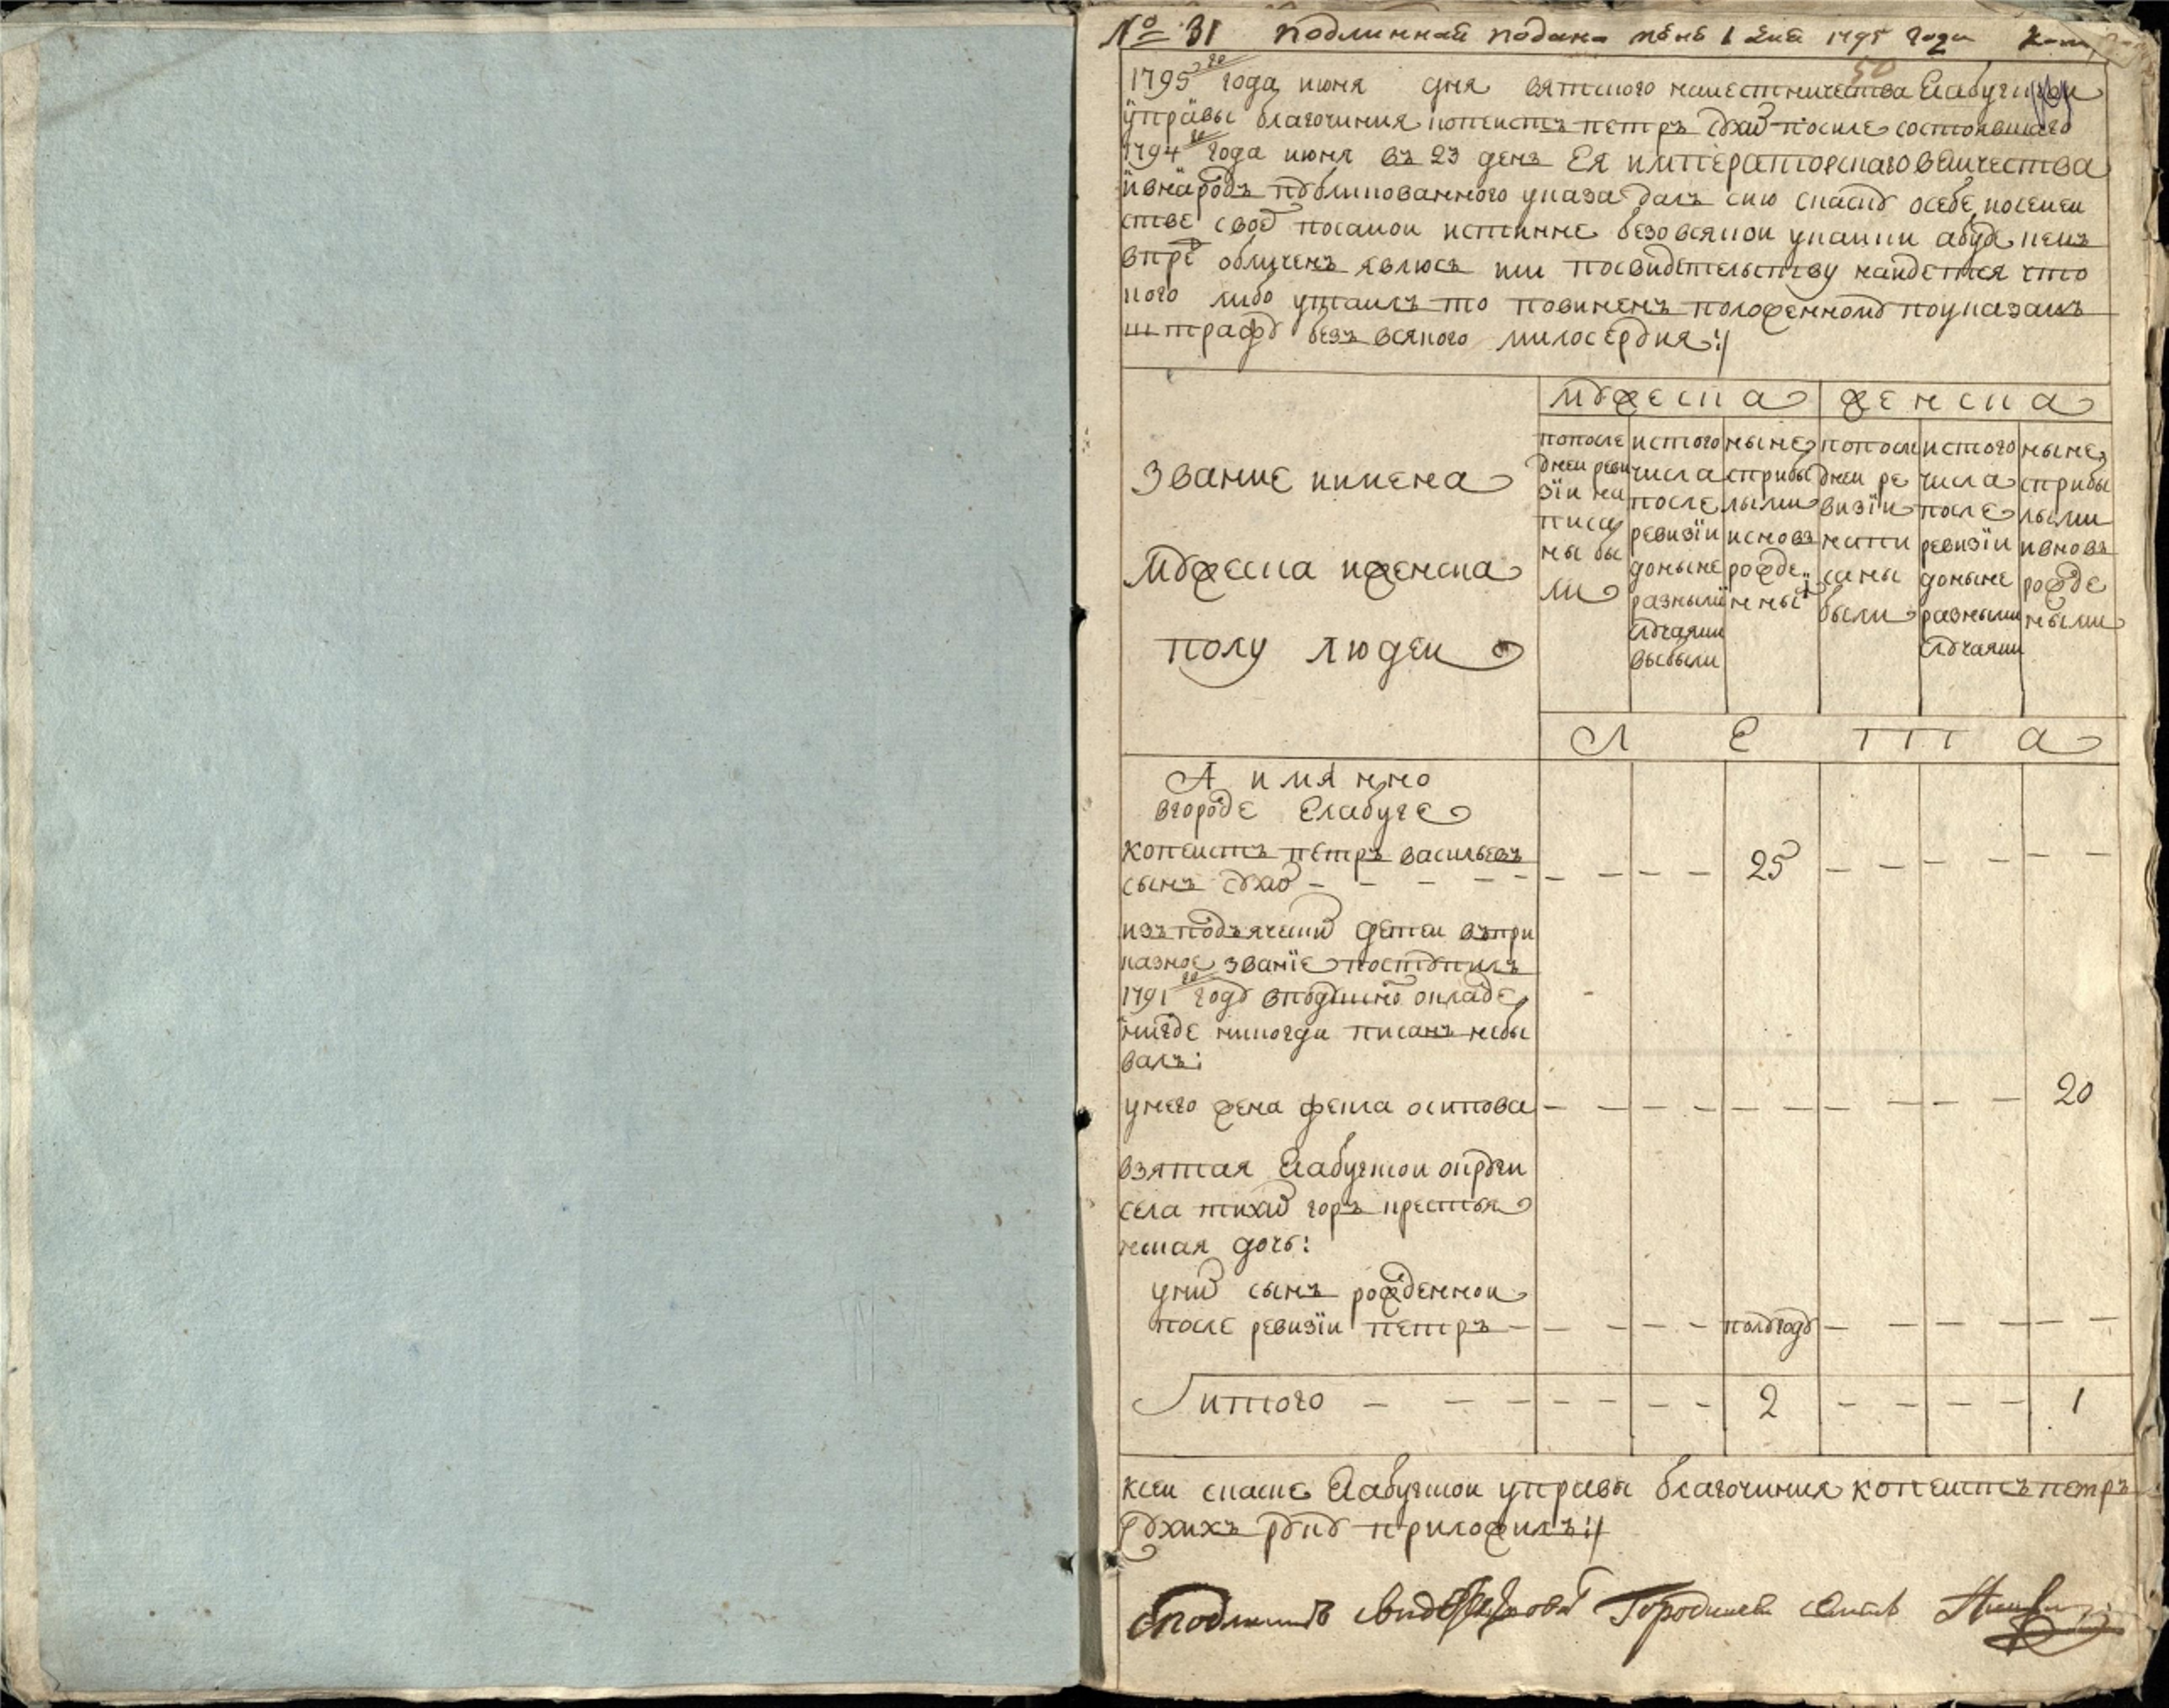 № 31 Подлинная подана июня 1 дня 1795 года
50
1795 го года июня дня вятского наместничества Елабугской
управы благочиния копеистъ петръ Сухо после состоявшаго
1794 го года июня въ 23 день Ея императорскаго величества
и внародъ публикованного указа далъ сию скаску осебе исемеи
стве своем посамои истинне безо всякои утаики абуде чемъ
впред обличенъ явлюсь или посвидетельству наидется что
кого либо утаилъ то повиненъ положенному поуказамъ
штрафу безъ всякого милосердия:/
мужеска женска
Звание иимена
мужеска иженска
полу людеи
попосле дней реви зїи на писа ны бы ли
истого числа после ревизїи доныне разными случаями выбыли
ныне сприбы лыми исновь рожде нныи
попосле дней ре визїи напи саны были
истого числа после ревизїи доныне разными случаями
ныне сприбы лыми ивновь рожде ными
Л Е Т А
А имянно
вгороде Елабуге
копеистъ петръ васильевъ
сынъ Сухо — 25
изъ подъяческих детеи въпри
казное званїе поступилъ
1791 го году вподушно окладе
нигде никогда писанъ небы
валъ:
унего жена фекла осипова — 20
взятая Елабугскои округи
села тихих горъ крестья
нская дочь:
уних сынъ рожденнои
после ревизїи петръ — полугоду
итого — 2 — 1
ксеи скаске Елабугскои управы благочиния копеистъ петръ
Сухихъ руку приложилъ:/
Сподлинною свидетельствовал Городничей